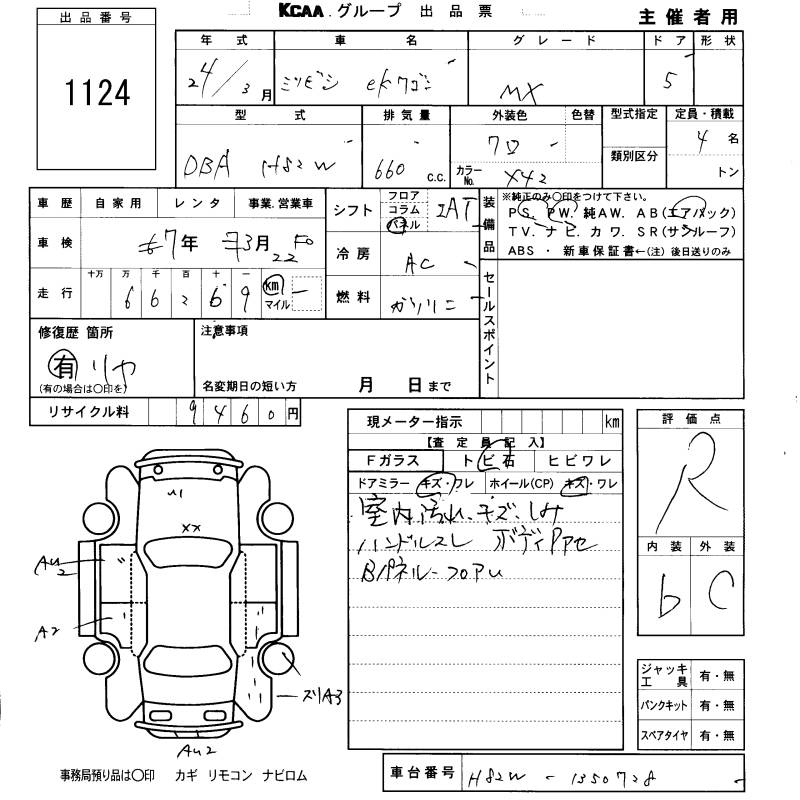 KCAA.グループ 出品票
主催者用
出品番号
1124
年式 車名 グレード ドア 形状
24/3月 ミツビシ ekワゴン MX 5
型式 排気量 外装色 色替 型式指定 定員・積載
DBA H82W 660 c.c. カラーNo. X42 類別区分 4名
トン
車歴 自家用 レンタ 事業.営業車
シフト フロア コラム パネル IAT
装備品
※純正のみ〇印をつけて下さい。
PS. PW. 純AW. AB(エアバック)
TV. ナビ. カワ. SR(サンルーフ)
ABS ・ 新車保証書←(注)後日送りのみ
車検 7年 3月 22
冷房 AC
走行 十万 万 千 百 十 一 km マイル
6 6 2 6 9
燃料 ガソリン
セールスポイント
修復歴 箇所
有 リヤ
(有の場合は〇印を)
注意事項
名変期日の短い方 月 日まで
リサイクル料 9460円
現メーター指示 km
【査定員記入】
Fガラス トビ石 ヒビワレ
ドアミラー キズ・ワレ ホイール(CP) キズ・ワレ
室内汚れ、キズ、しみ
ハンドルスレ ボディ
Bパネル-フロアU
評価点
R
内装 外装
b C
U1
XX
AU2
A2
ズリA3
AU2
ジャッキ工具 有・無
パンクキット 有・無
スペアタイヤ 有・無
事務局預り品は〇印 カギ リモコン ナビロム
車台番号 H82W - 1350728